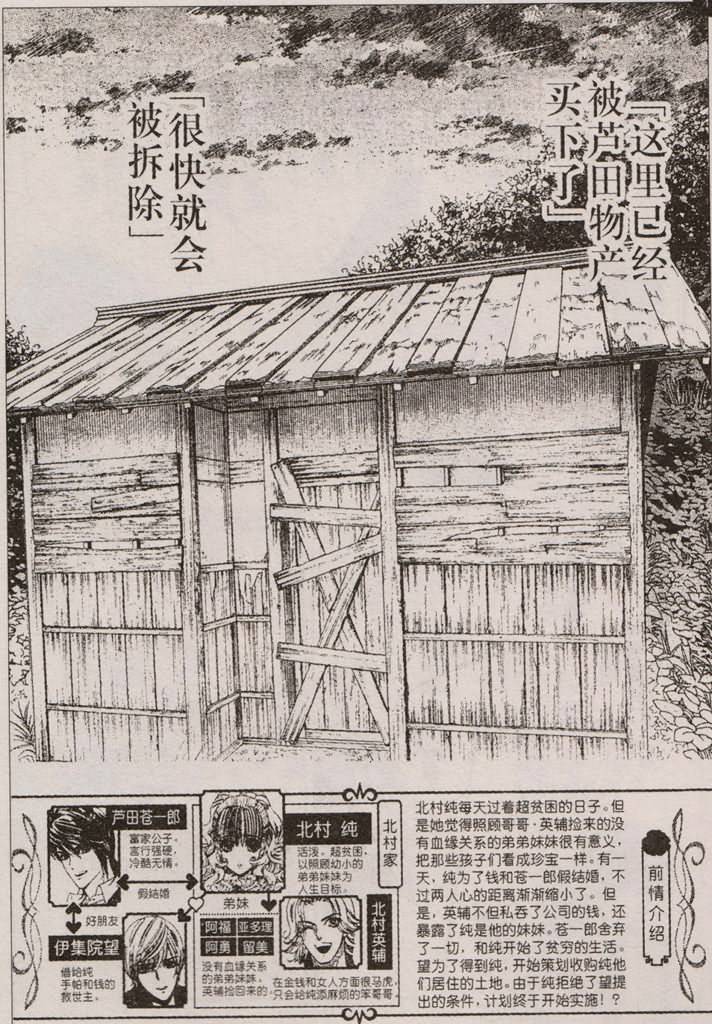 「这里已经
被芦田物产
买下了」
「很快就会
被拆除」
芦田苍一郎
富家公子。
言行强硬,
冷酷无情。
假结婚
好朋友
伊集院望
借给纯
手帕和钱的
救世主。
北村 纯
活泼。超贫困,
以照顾幼小的
弟弟妹妹为
人生目标。
北村家
弟妹
阿福 亚多理
阿勇 留美
没有血缘关系
的弟弟妹妹,
英辅捡回来的。
北村英辅
在金钱和女人方面很马虎,
只会给纯添麻烦的笨哥哥。
前情介绍
北村纯每天过着超贫困的日子。但
是她觉得照顾哥哥·英辅捡来的没
有血缘关系的弟弟妹妹很有意义,
把那些孩子们看成珍宝一样。有一
天,纯为了钱和苍一郎假结婚,不
过两人心的距离渐渐缩小了。但
是,英辅不但私吞了公司的钱,还
暴露了纯是他的妹妹。苍一郎舍弃
了一切,和纯开始了贫穷的生活。
望为了得到纯,开始策划收购纯他
们居住的土地。由于纯拒绝了望提
出的条件,计划终于开始实施!?